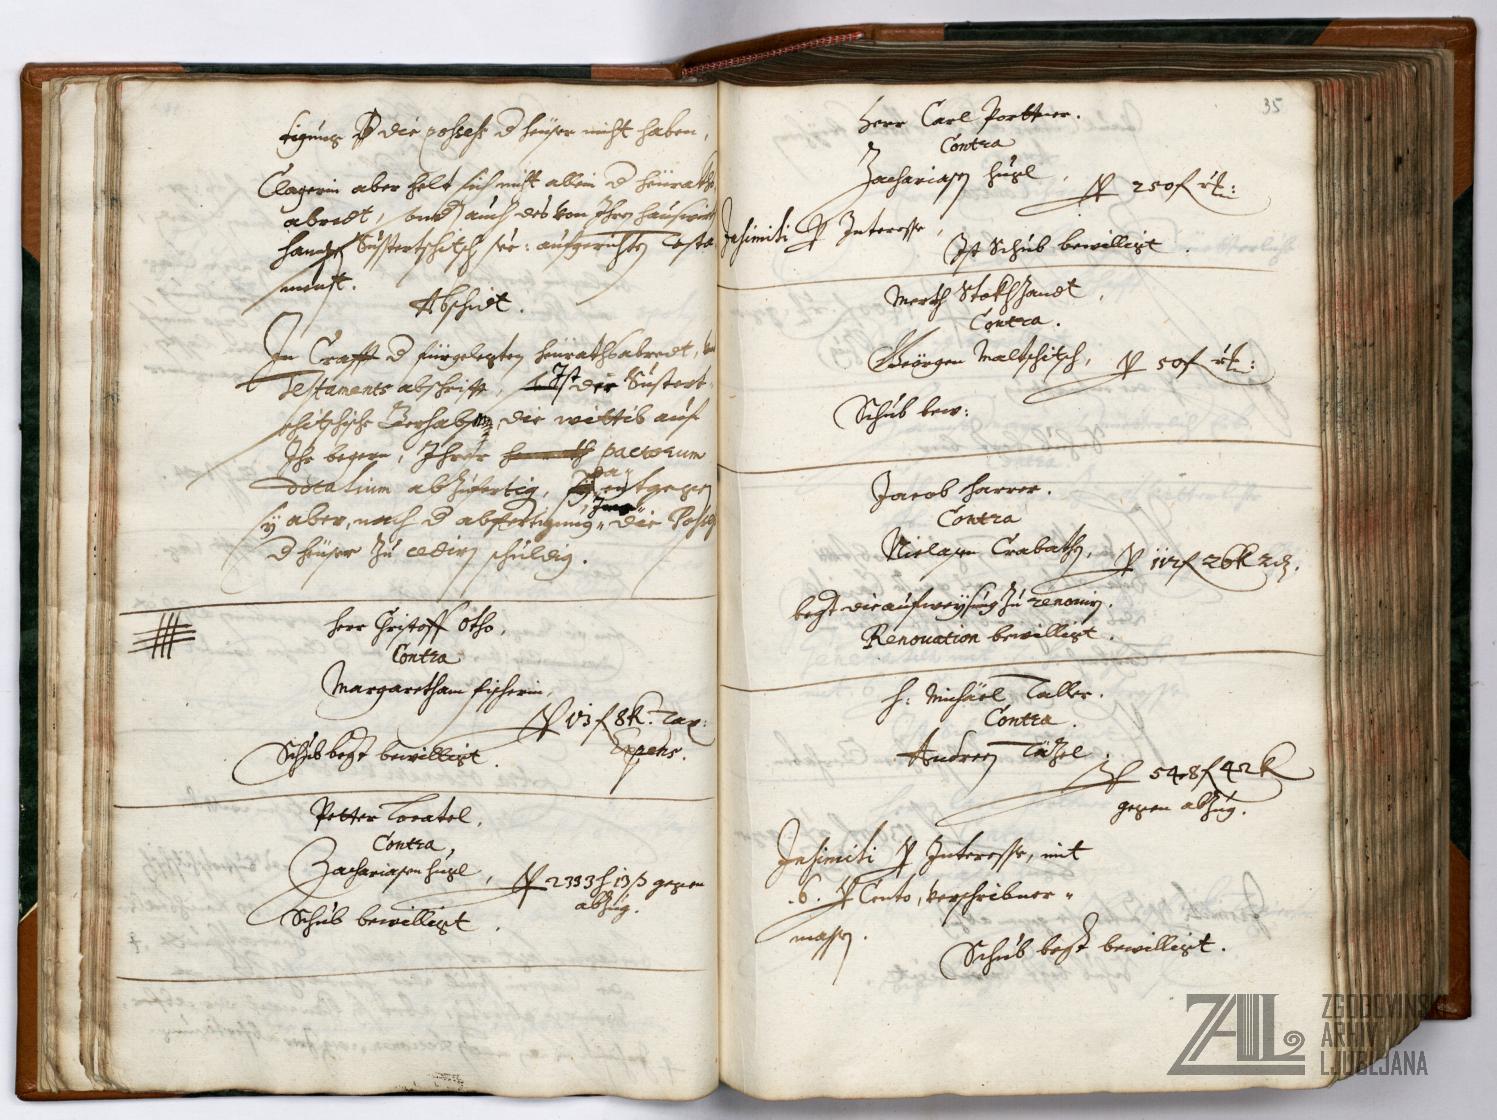 tigung die possess d heüser nicht haben,
Clagerin aber helt sich nicht allein d heüraths
abredt, auch des von Ihrem hauswirt
Sustertschitsch see: aufgerichten Testa
ment.
Abschidt.
In Crafft d fürgelegten heürathsabredt,
Testaments abschrifft, Ist die Sustert
schitschische Gerhab die wittib auf
Ihr begern, Ihrer pactorum
dotalium abzufertig, entgegen
sÿ aber, nach d abfertigung die Possess
d heüser zu cedirn schuldig.
Herr Christoff Otho,
Contra
Margaretham Fischerin,
8k. Tax:
Expens.
Schub begt bewilligt.
Petter Locatel,
Contra,
Zachariasen hügl, 2333 f 13 ß gegen
abzug.
Schub bewilligt.
35
Herr Carl Porttner.
Contra
Zachariasen hügl, 250 f rh:
Insimili Interesse,
Ist Schub bewilligt.
Merth Stokhzandt,
Contra.
Geörgen Maltschitsch, 50 f rh:
Schub bew:
Jacob harrer.
Contra
Niclasen Crabathen, 112 f 26k 2d.
begt die aufweÿsung zu renovirn.
Renovation bewilligt.
h: Michäel Taller.
Contra.
Andreen Täzel.
548 f 42k
gegen abzug.
Insimili Interesse, mit
.6. Cento, verschribner
massen.
Schub begt bewilligt.
ZAL
ZGODOVINSKI
ARHIV
LJUBLJANA